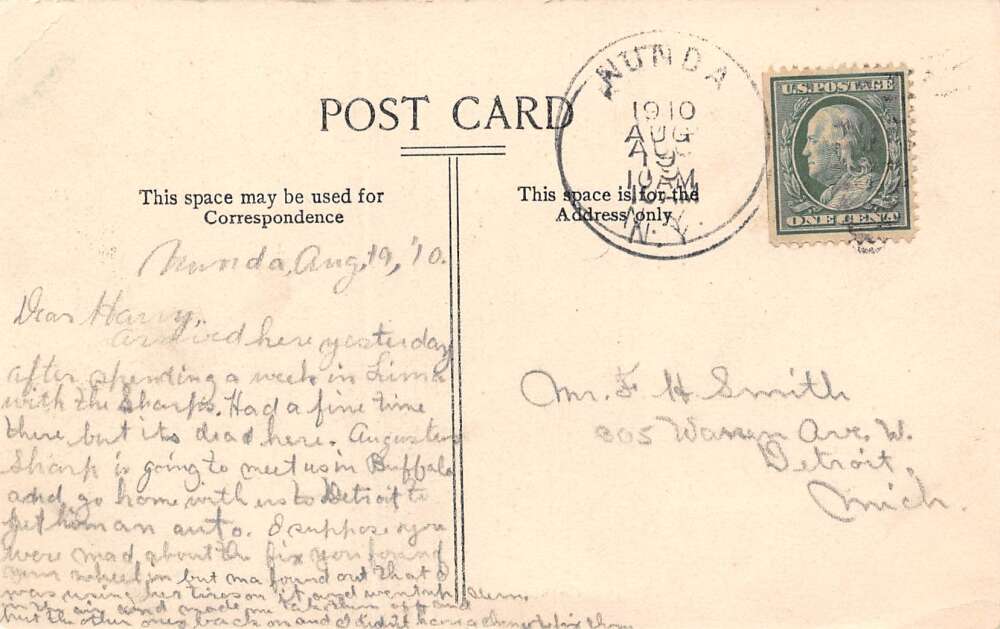 POST CARD
This space may be used for
Correspondence
This space is for the
Address only
NUNDA
1910
AUG
19
10 AM
N.Y.
U.S. POSTAGE
ONE CENT
Nunda, Aug. 19, '10.
Dear Harry,
Arrived here yesterday
after spending a week in Lima
with the Sharps. Had a fine time
there but its dead here. Augustus
Sharp is going to meet us in Buffalo
and go home with us to Detroit to
get him an auto. I suppose you
were mad about the fix you found
your wheel in but ma found out that I
was using her tires on it and went up
in the air and made me take them off and
put the other ones back on and I didn't have a chance to fix them
Mr. F H Smith
805 Warren Ave. W.
Detroit,
Mich.